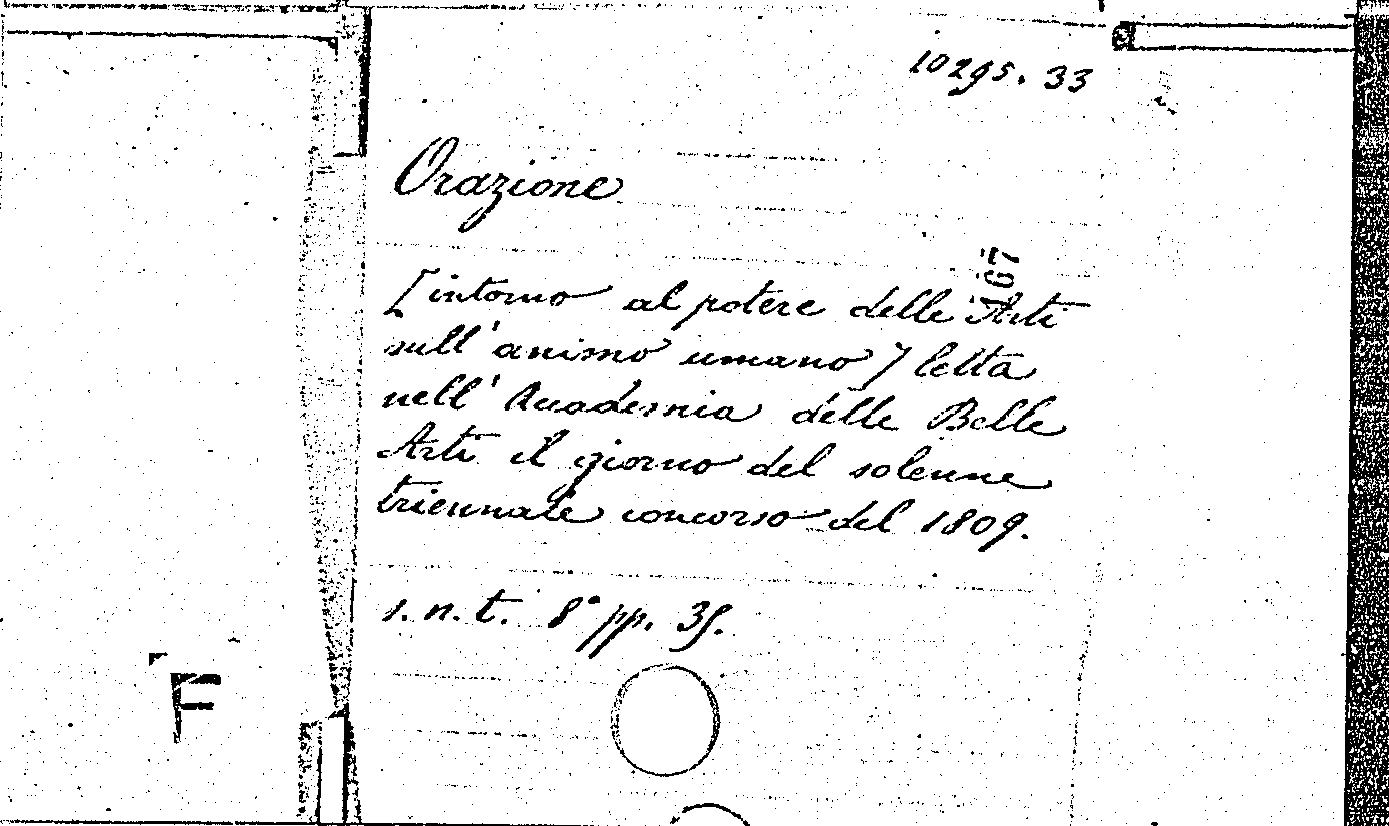 10295. 33
Orazione
167
[intorno al potere delle Arti
sull'animo umano] letta
nell'Accademia delle Belle
Arti il giorno del solenne
triennale concorso del 1809.
s. n. t. 8° pp. 35.
F